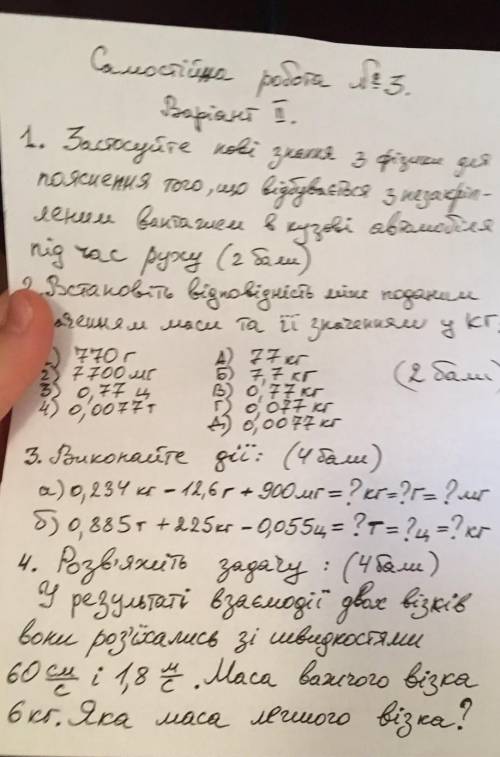 Самостійна робота № 3.
Варіант II.
1. Застосуйте нові знання з фізики для
пояснення того, що відбувається з незакріп-
леним вантажем в кузові автомобіля
під час руху (2 бали)
2. Встановіть відповідність між поданим
значенням маси та її значенням у кг.
1) 770 г А) 77 кг
2) 7700 мг Б) 7,7 кг (2 бали)
3) 0,77 ц В) 0,77 кг
4) 0,0077 т Г) 0,077 кг
Д) 0,0077 кг
3. Виконайте дії: (4 бали)
а) 0,234 кг – 12,6 г + 900 мг = ? кг = ? г = ? мг
б) 0,885 т + 225 кг – 0,055 ц = ? т = ? ц = ? кг
4. Розв'яжіть задачу : (4 бали)
У результаті взаємодії двох візків
вони роз'їхались зі швидкостями
60 см/с і 1,8 м/с. Маса важчого візка
6 кг. Яка маса легшого візка?